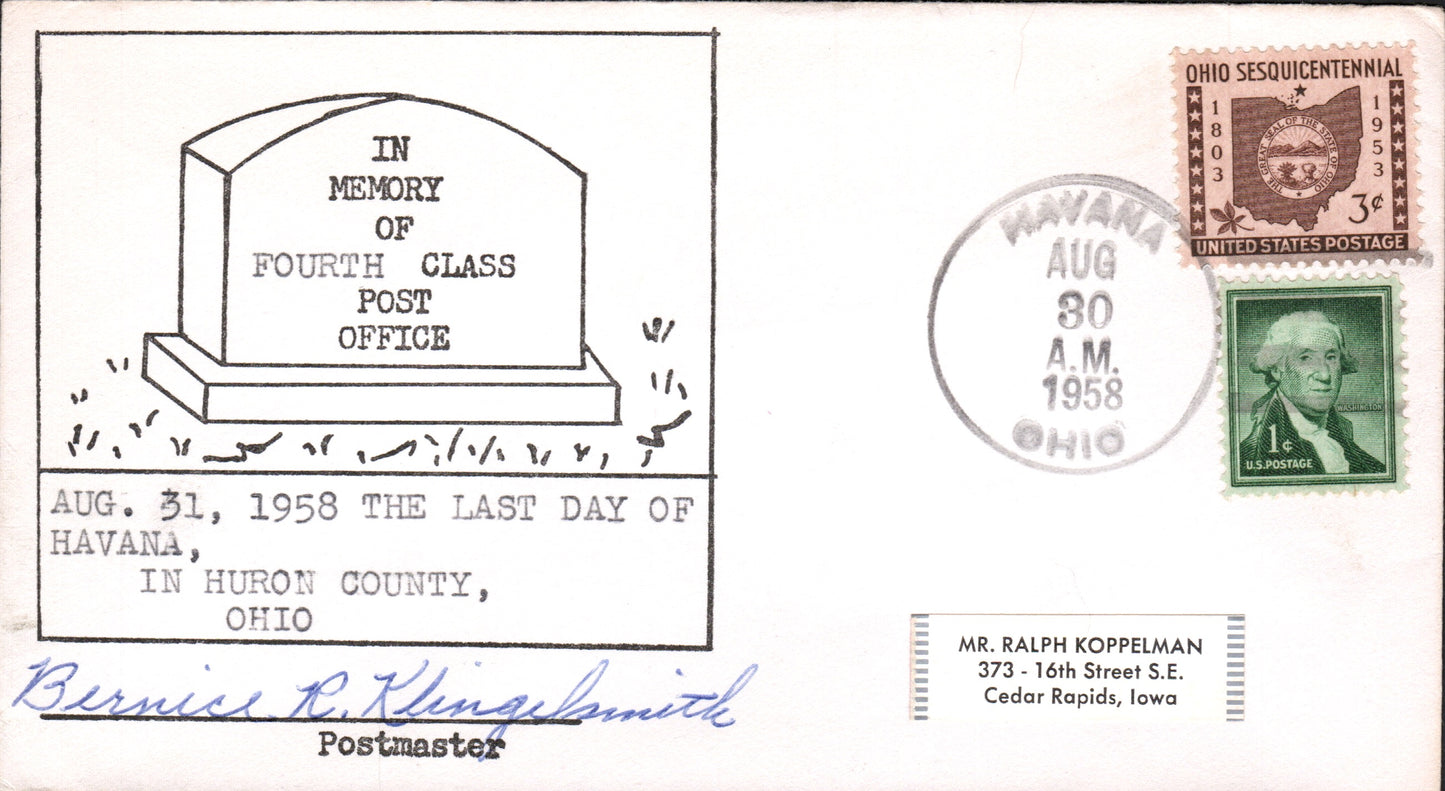 IN
MEMORY
OF
FOURTH CLASS
POST
OFFICE
AUG. 31, 1958 THE LAST DAY OF
HAVANA,
IN HURON COUNTY,
OHIO
Bernice R. Klingelsmith
Postmaster
HAVANA
AUG
30
A.M.
1958
OHIO
OHIO SESQUICENTENNIAL
1803
1953
THE GREAT SEAL OF THE STATE OF OHIO
3¢
UNITED STATES POSTAGE
WASHINGTON
1¢
U.S. POSTAGE
MR. RALPH KOPPELMAN
373 - 16th Street S.E.
Cedar Rapids, Iowa